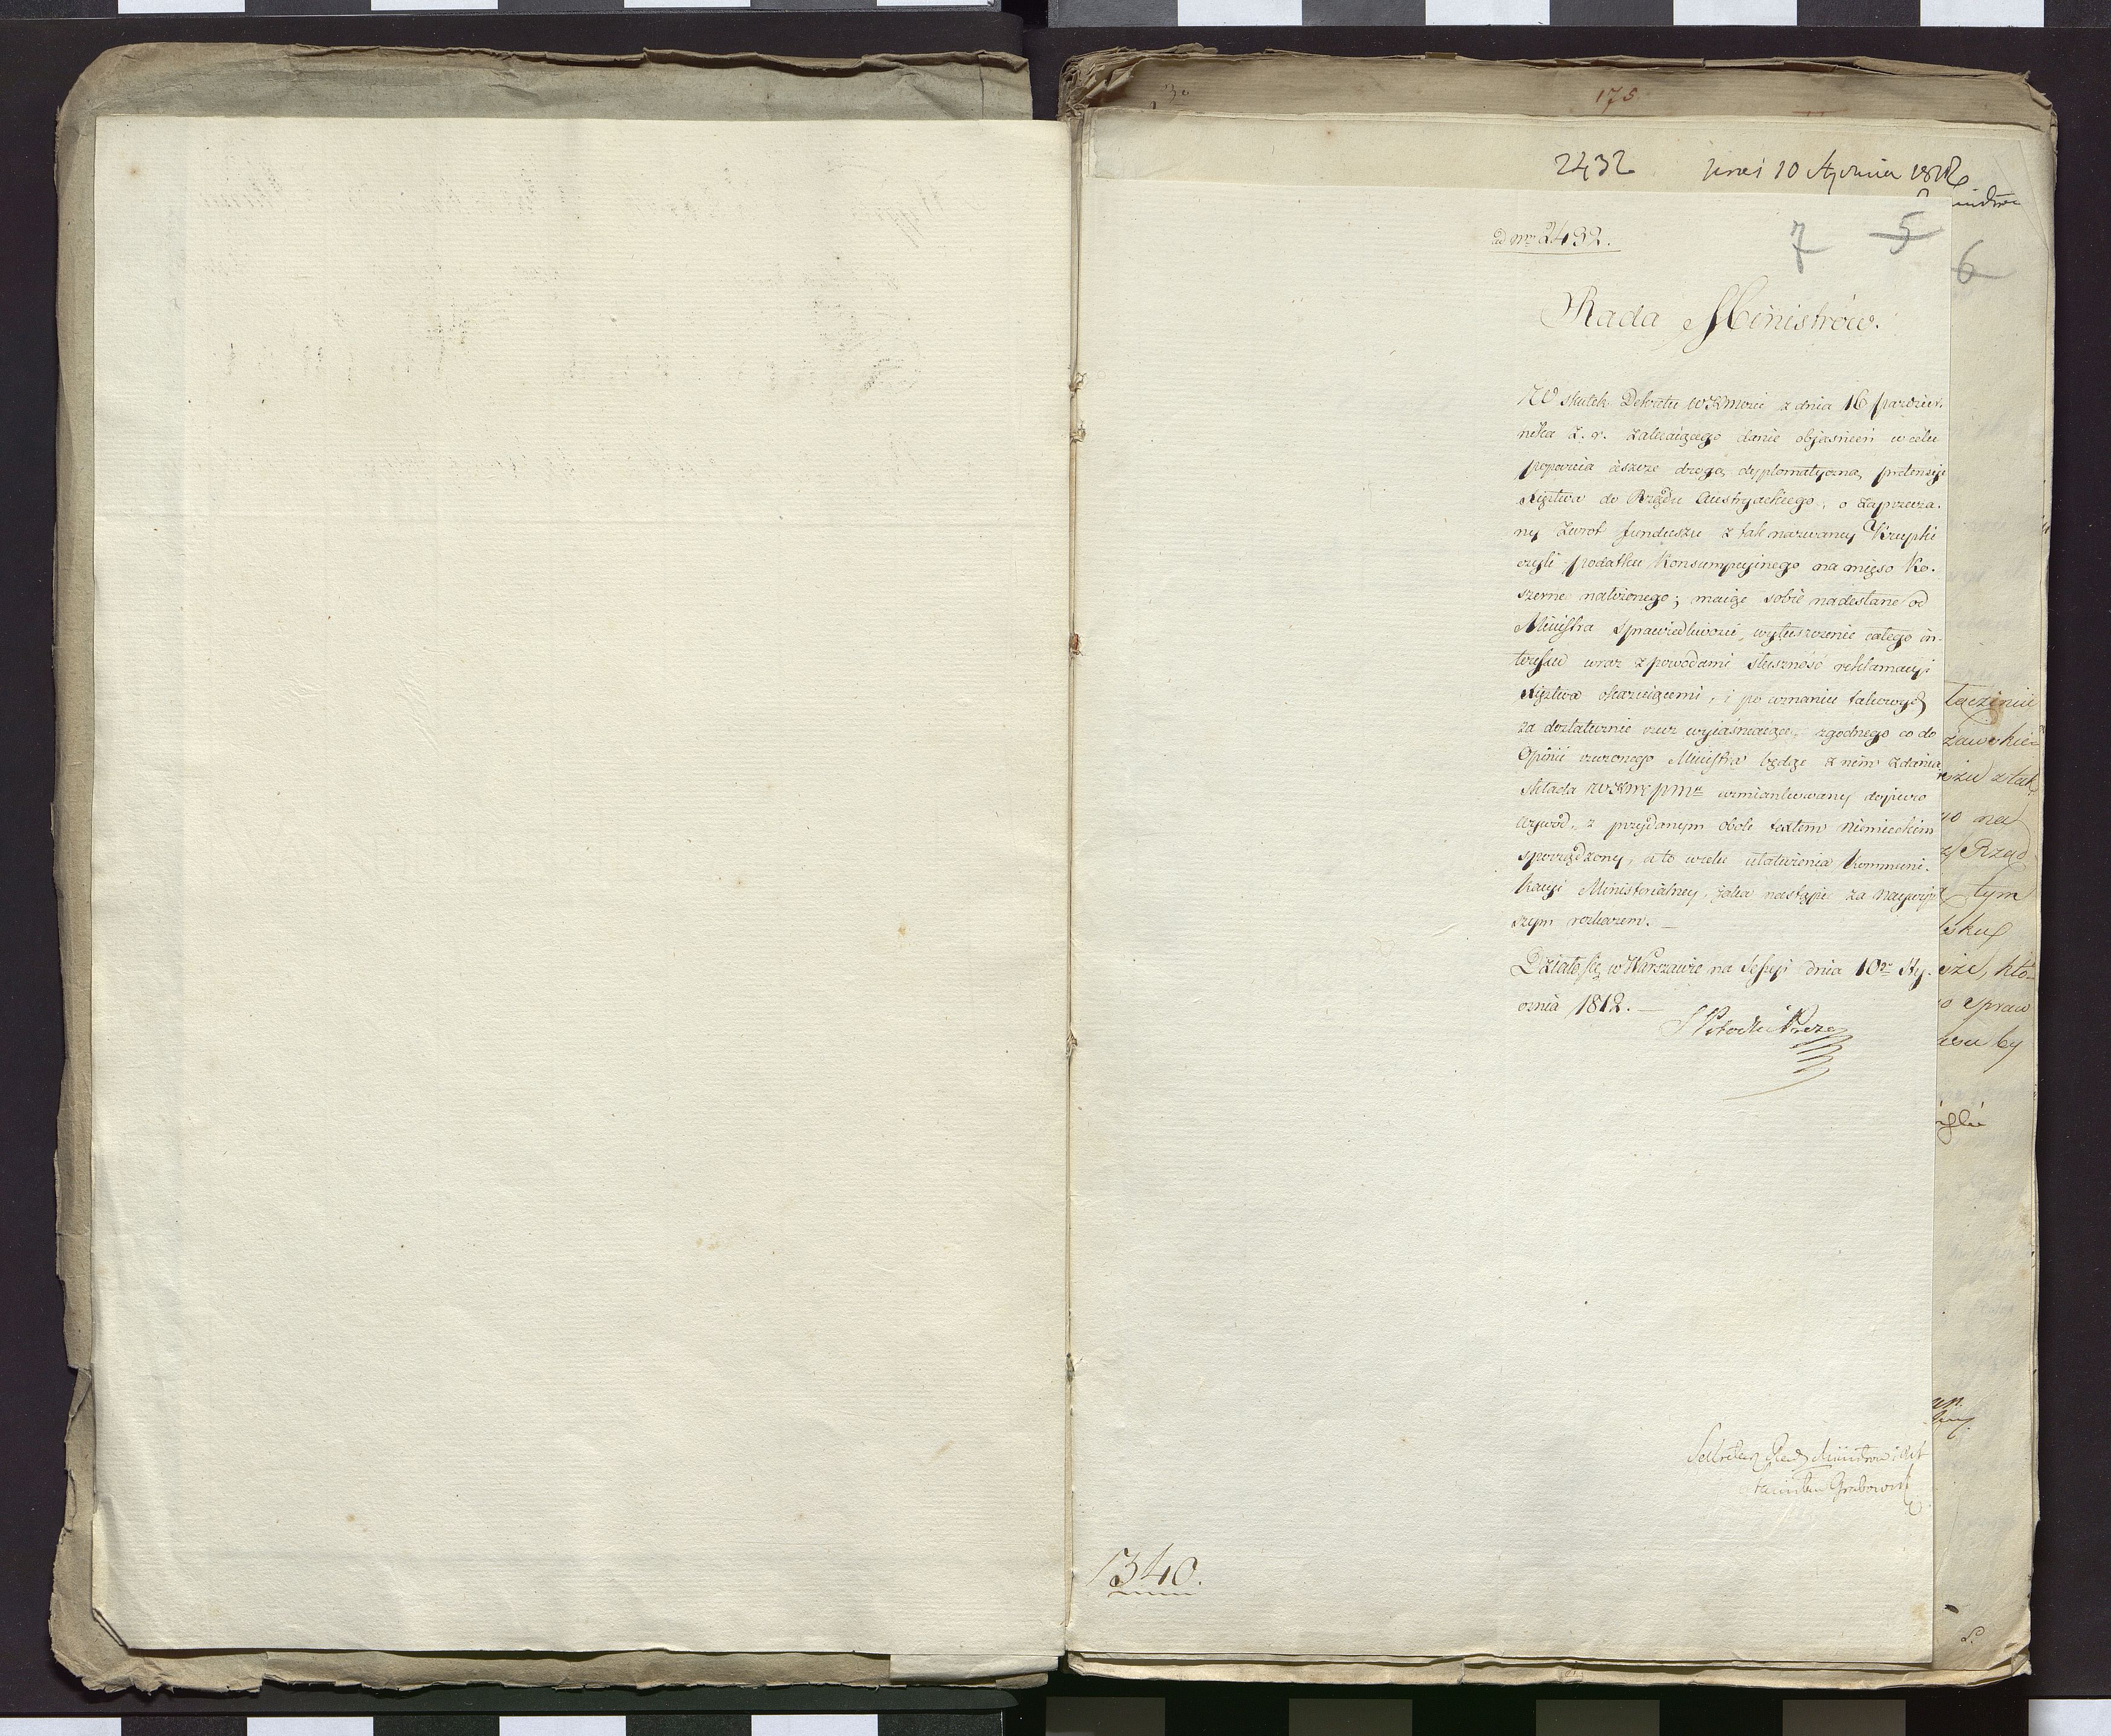 175
2432 10 Stycznia 1812
ad Nr 2432.
7 5
6
Rada Ministrów.
W skutek Dekretu WKMości z dnia 16 paździer-
nika z. r. zalecaiącego danie objaśnień w celu
poparcia ieszcze drogą dyplomatyczną pretensyi
Xięztwa do Rządu Austryackiego, o zaprzecza-
ny zwrot funduszu z tak nazwaney Krupki
czyli podatku Konsumpcyinego na mięso Ko-
szerne nałożonego; maiąc sobie nadesłane od
Ministra Sprawiedliwości, wyłuszczenie całego in-
teressu wraz z powodami słuszność reklamacyi
Xięztwa okazuiącemi, i po uznaniu takowych
za dostatecznie rzecz wyiaśniaiące, zgodnego co do
Opinii rzeczonego Ministra będąc z nim zdania
składa WKMci pmu wzmiankowany dopiero
wywód, z przydanym obok textem niemieckim
sporządzony, a to w celu ułatwienia Kommuni-
kacyi Ministerialney, iaka nastąpi za naywyż-
szym rozkazem. —
Działo się w Warszawie na Sessyi dnia 10go Sty-
cznia 1812. —
S Potocki Prezes
Sekretarz Rady Ministrów
Stanisław Grabowski
1340.
żawskie
z tak
na
Rząd
tym
któ-
spraw
by